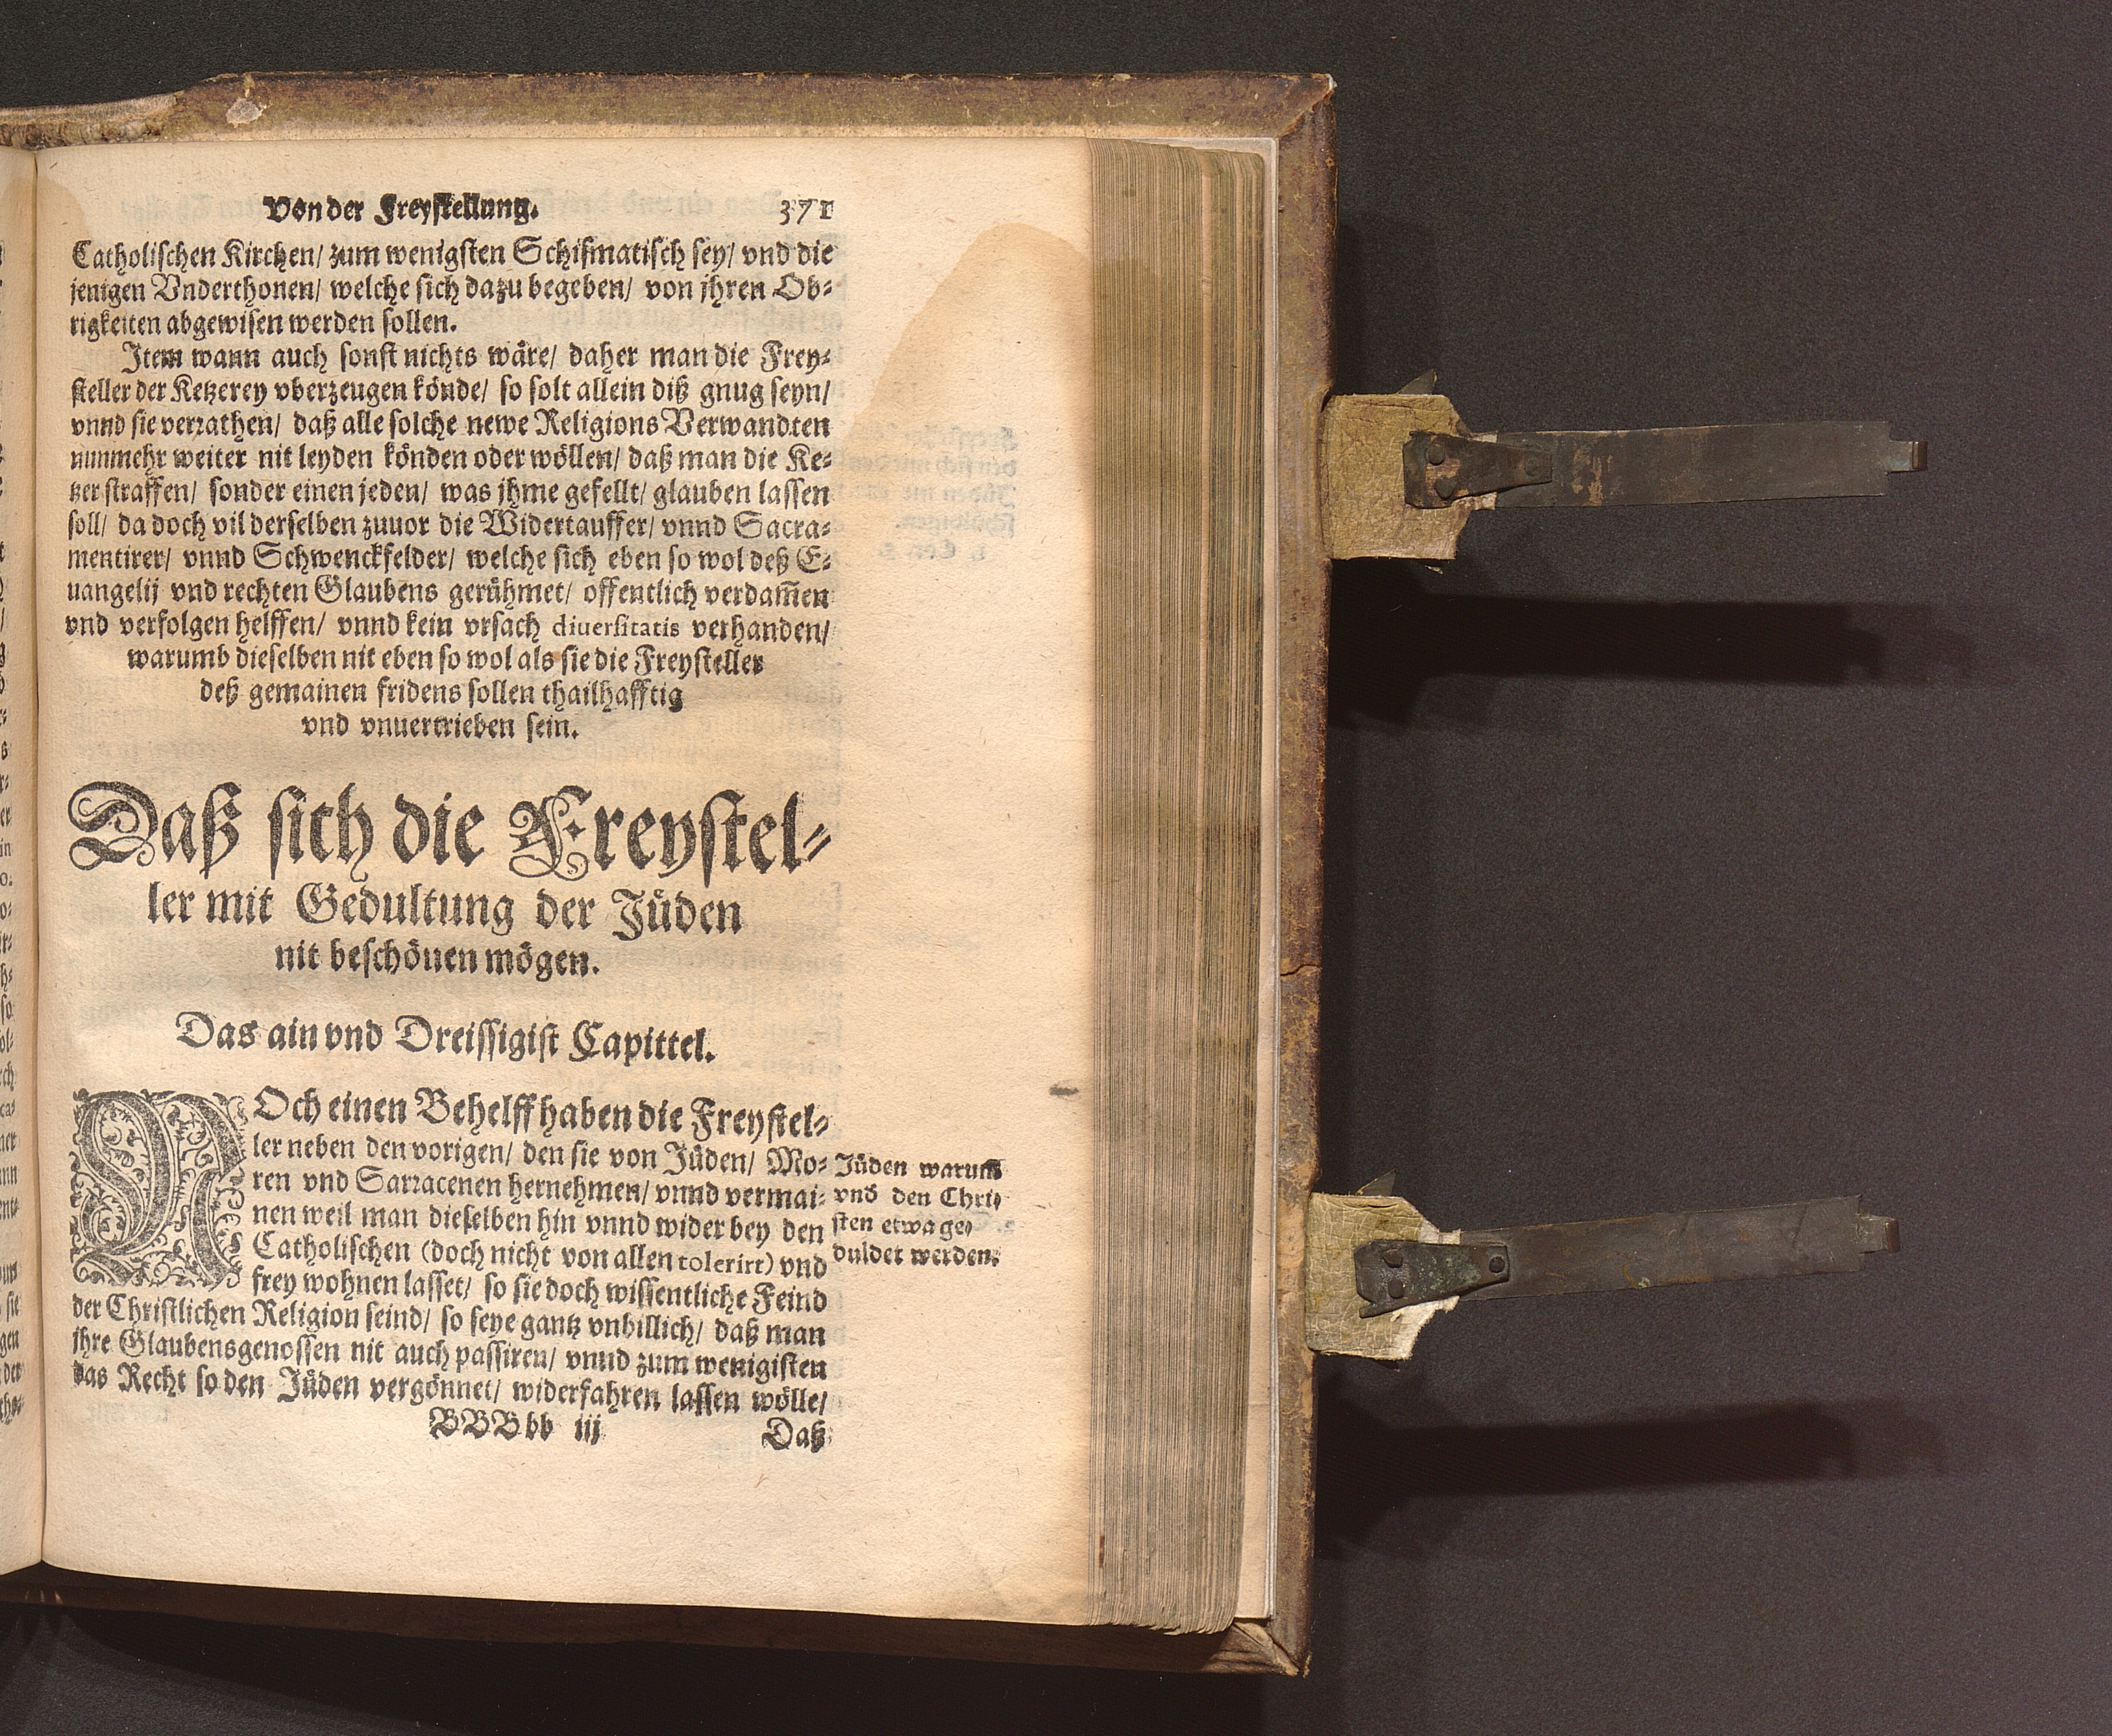 Von der Freystellung. 371
Catholischen Kirchen/ zum wenigsten Schismatisch sey/ vnd die
jenigen Vnderthonen/ welche sich dazu begeben/ von jhren Ob⸗
rigkeiten abgewisen werden sollen.
Item wann auch sonst nichts wäre/ daher man die Frey⸗
steller der Ketzerey vberzeugen könde/ so solt allein diß gnug seyn/
vnnd sie verrathen/ daß alle solche newe Religions Verwandten
nunmehr weiter nit leyden könden oder wöllen/ daß man die Ke⸗
tzer straffen/ sonder einen jeden/ was jhme gefellt/ glauben lassen
soll/ da doch vil derselben zuuor die Widertauffer/ vnnd Sacra⸗
mentirer/ vnnd Schwenckfelder/ welche sich eben so wol deß E⸗
uangelij vnd rechten Glaubens gerühmet/ offentlich verdam̄en
vnd verfolgen helffen/ vnnd kein vrsach diuersitatis verhanden/
warumb dieselben nit eben so wol als sie die Freysteller
deß gemainen fridens sollen thailhafftig
vnd vnuertrieben sein.
Daß sich die Freystel⸗
ler mit Gedultung der Jüden
nit beschönen mögen.
Das ain vnd Dreissigist Capittel.
NOch einen Behelff haben die Freystel⸗
ler neben den vorigen/ den sie von Jüden/ Mo⸗
ren vnd Sarracenen hernehmen/ vnnd vermai⸗
nen weil man dieselben hin vnnd wider bey den
Catholischen (doch nicht von allen tolerirt) vnd
frey wohnen lasset/ so sie doch wissentliche Feind
der Christlichen Religion seind/ so seye gantz vnbillich/ daß man
jhre Glaubensgenossen nit auch passiren/ vnnd zum wenigisten
das Recht so den Jüden vergönnet/ widerfahren lassen wölle/
Jüden warum̄
vnd den Chri⸗
sten etwa ge⸗
duldet werden.
BBBbb iij Daß